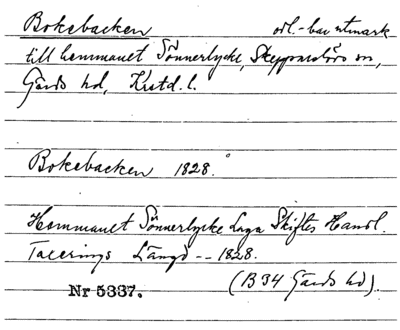 Bokebacken odl.-bar utmark
till hemmanet Sönnerlycke, Skepparslövs sn,
Gärds hd, Kristd. l.
Bokebacken 1828.
Hemmanet Sönnerlycke Laga Skiftes Handl.
Taxerings Längd -- 1828.
(B34 Gärds hd).
Nr 5337.